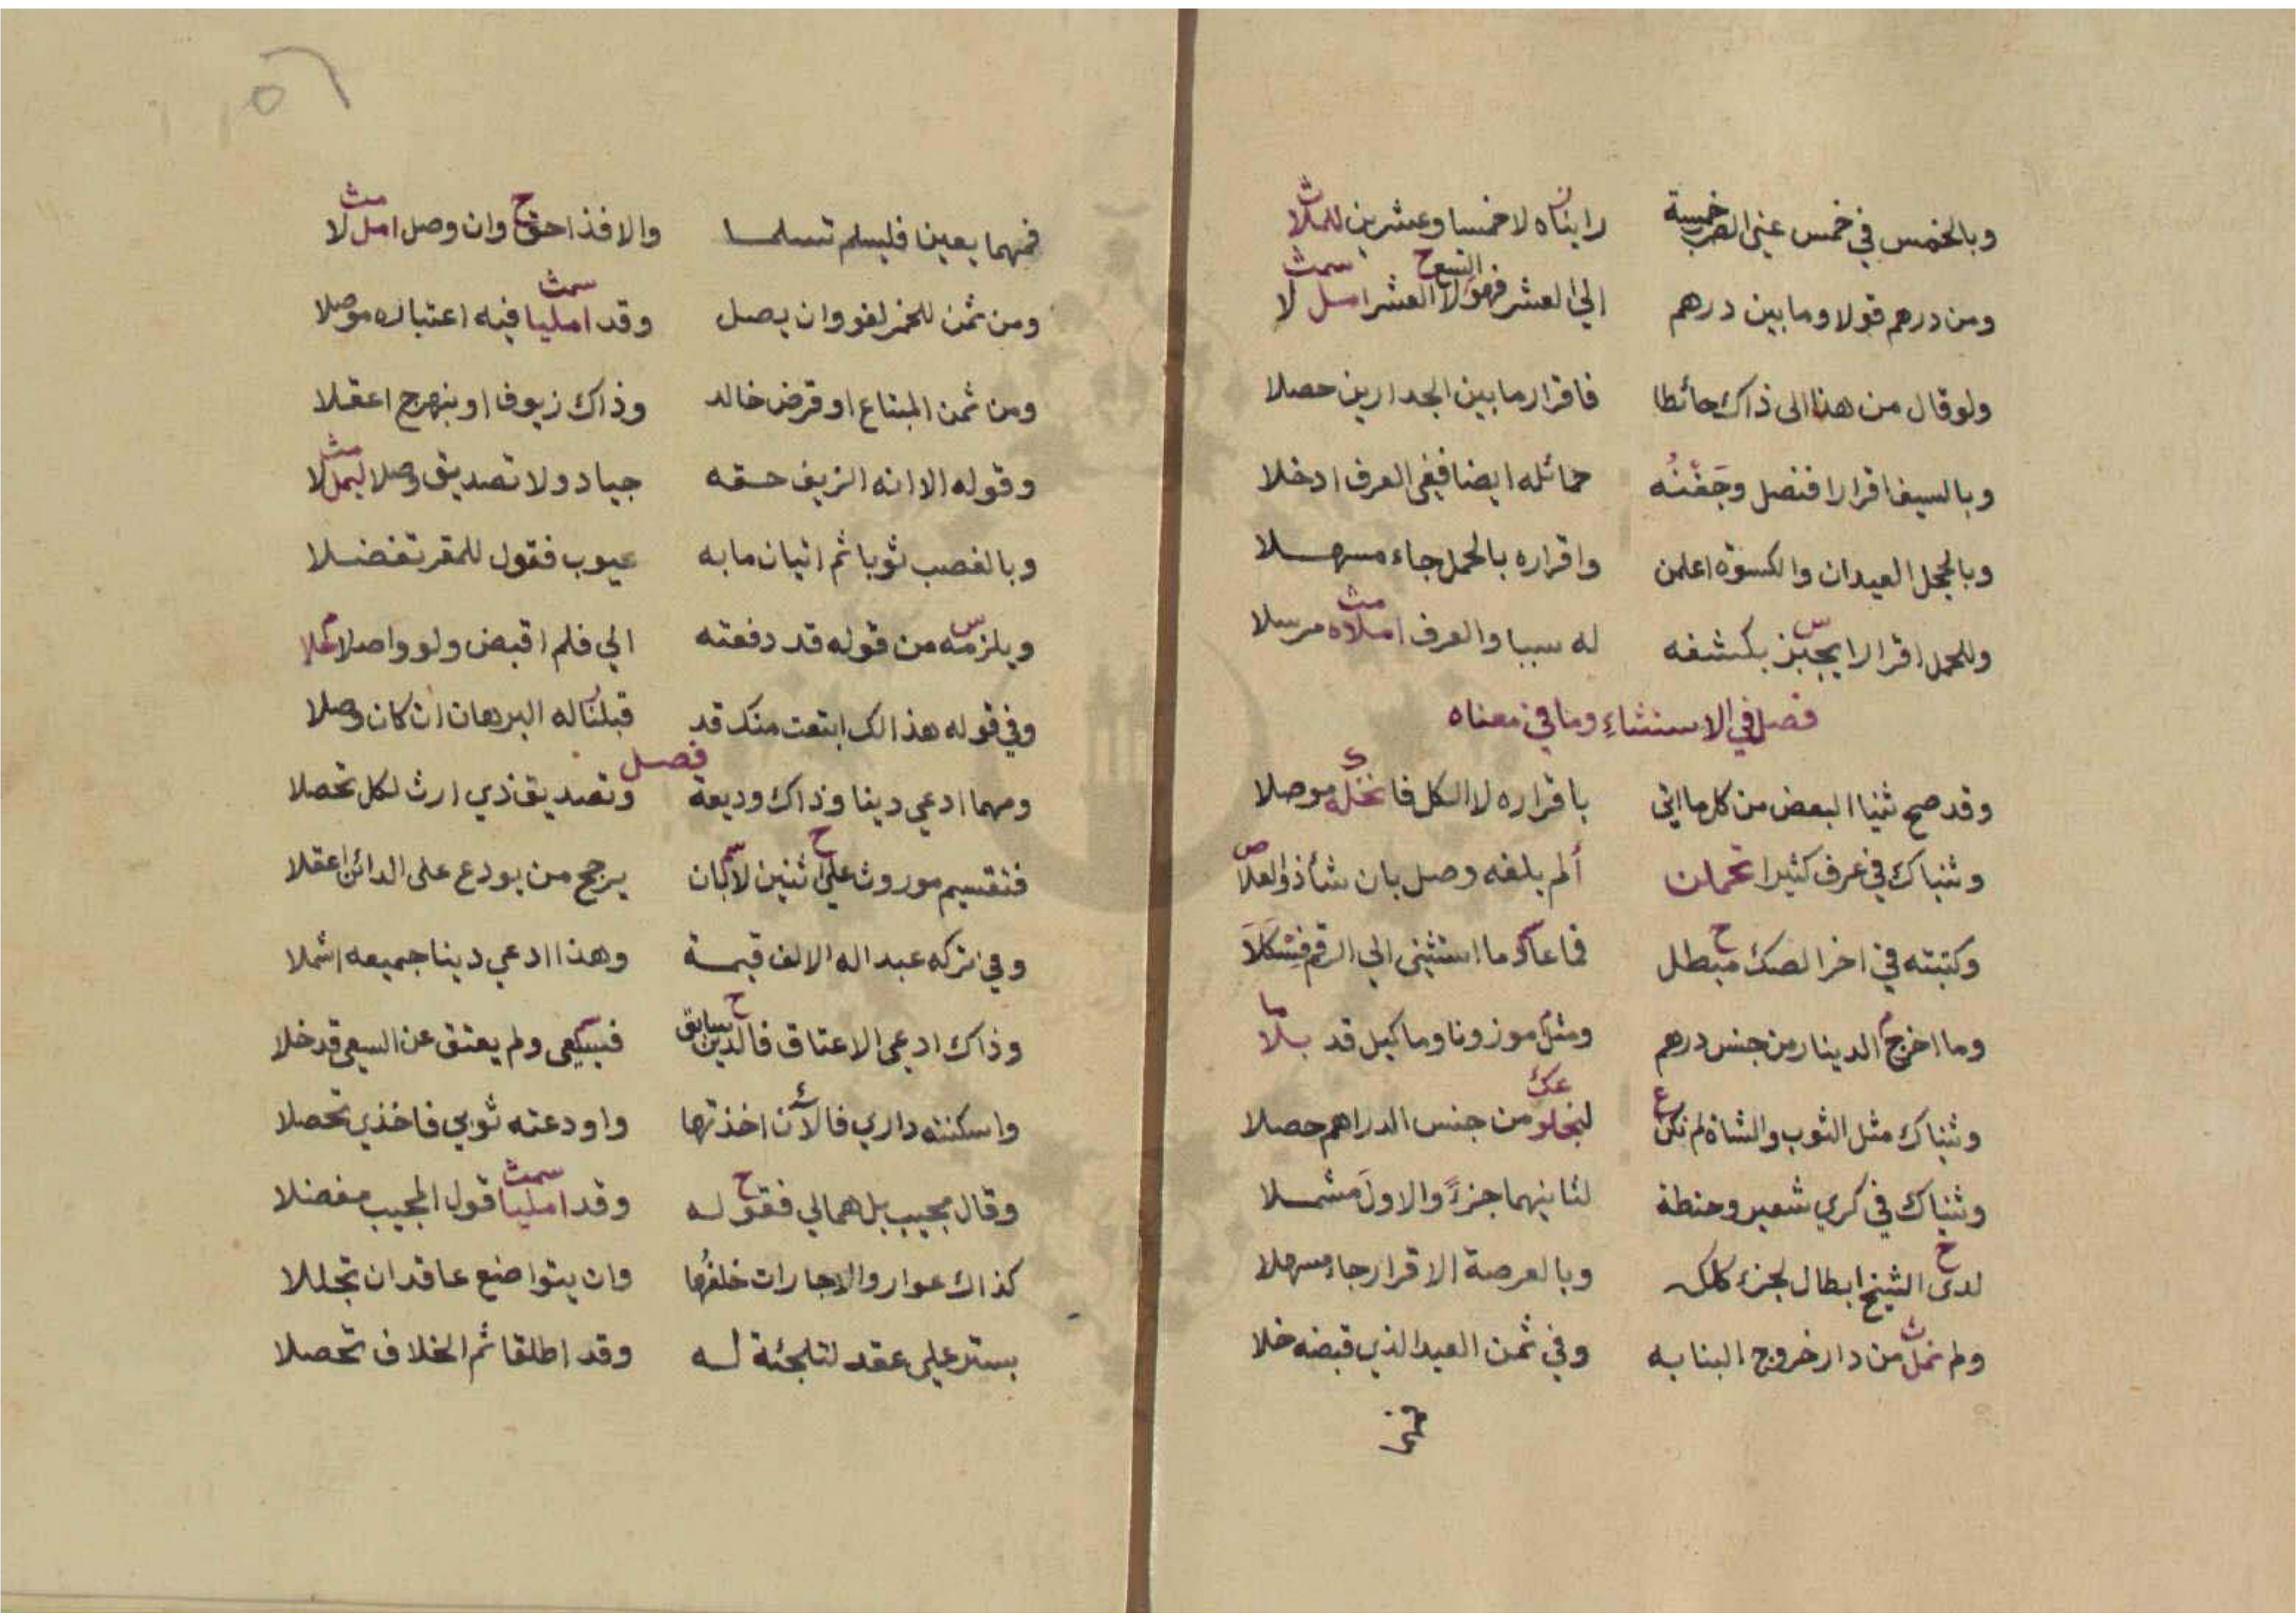 وبالخمس في خمس عني الضرب خمسة رايناه لا خمسا وعشرين للملا
ومن درهم قولا وما بين درهم الي العشر فهو التسع لا العشر امل لا
ولو قال من هذا الى ذاك حائطا فاقرار ما بين الجدارين حصلا
وبالسيف اقرارا فنصل وجفنه حمائله ايضا ففي العرف ادخلا
وبالحجل العيدان والكسوة اعلمن واقراره بالحمل جاء مسهلا
وللحمل اقرارا يجيز بكشفه له سببا والعرف املاه مرسلا
فصل في الاستثناء وما في معناه
وقد صح ثنيا البعض من كل ما اتى باقراره لا الكل فا موصلا
وثنياك في عرف كثيرا تحملن ألم يلفه وصل بان شأ ذو العلا
وكتبته في اخر الصك مبطل فما عاد ما استثنى الي الرقم
وما اخرج الدينار من جنس درهم ومثل موزونا وما كيل قد بلا
وثنياك مثل الثوب والشاة لم تكن من جنس الدراهم حصلا
وثنياك في كري شعير وحنطة لثانيهما جزء والاول مشملا
لدى الشيخ ابطال لجزء ككلك وبالعرصة الاقرار جاء مسهلا
ولم نمل من دار خروج البنا به وفي ثمن العبد الذي قبضه خلا
فمهما يعين فليسلم تسلما والا فذا حق وان وصل امل لا
ومن ثمن للخمر لغو وان يصل وقد امليا فيه اعتباره موصلا
ومن ثمن المبتاع او قرض خالد وذاك زيوف او بنهرج اعقلا
وقوله الا انه الزيف حقه جياد ولا تصديق وصلا ليمل لا
وبالغصب ثوبا ثم اتيان ما به عيوب فقول للمقر تفضلا
ويلزمه من قوله قد دفعته الي فلم اقبض ولو واصلا
وفي قوله هذا لك ابتعت منك قد قبلنا له البرهان ان كان وصلا
فصل
ومهما ادعي دينا وذاك وديعة وتصديق ذي ارث لكل تحصلا
فتقسيم موروث على اثنين لا كأن يرجح من يودع على الدائن اعقلا
وفي تركه عبدا له الالف قيمة وهذا ادعي دينا جميعه اشملا
وذاك ادعى الاعتاق فالدين سابق فيسعى ولم يعتق عن السعي قد خلا
واسكنته داري فالان اخذتها واودعته ثوبي فاخذي تحصلا
وقال مجيب بل هما لي فقوله وقد امليا قول المجيب مفضلا
كذاك عوار والاجارات خلفها وان يتواضع عاقدان تجللا
بستر علي عقد لتلجئة له وقد اطلقا ثم الخلاف تحصلا